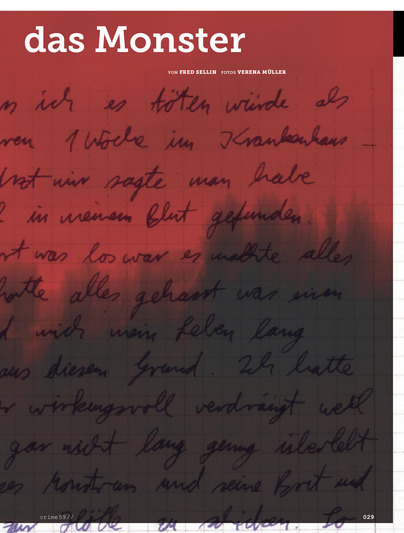 das Monster
VON FRED SELLIN FOTOS VERENA MÜLLER
ich es töten würde als
1 Woche im Krankenhaus
mir sagte man habe
in meinem Blut gefunden.
was los war es machte alles
hatte alles gehasst was einen
mich mein Leben lang
aus diesem Grund. Ich hatte
wirkungsvoll verdrängt weil
gar nicht lang genug überlebt
Monstrum und seine Brut und
zur Hölle zu schicken. So
crime59//
029